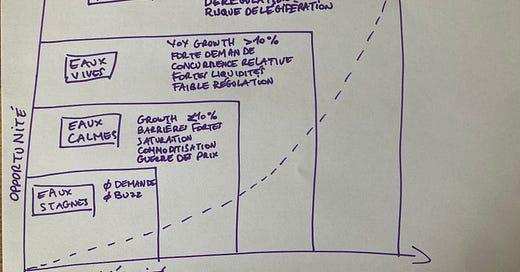 YOY GROWTH >10%
EAUX
VIVES
FORTE DEMANDE
CONCURRENCE RELATIVE
FORTES LIQUIDITÉS
FAIBLE RÉGULATION
OPPORTUNITÉ
EAUX
CALMES
GROWTH ≤10%
BARRIÈRES FORTES
SATURATION
COMMODITISATION
GUERRE DES PRIX
EAUX
STAGNES
∅ DEMANDE
∅ BUZZ